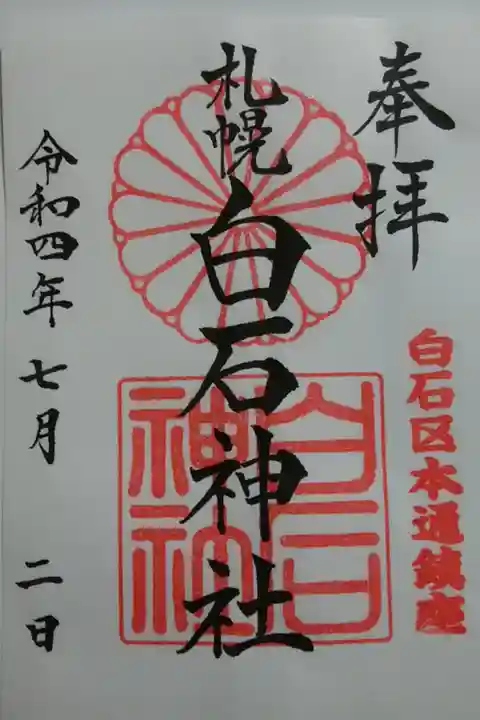 奉拝
白石区本通鎮座
札幌
白石神社
白石神社
令和四年七月二日